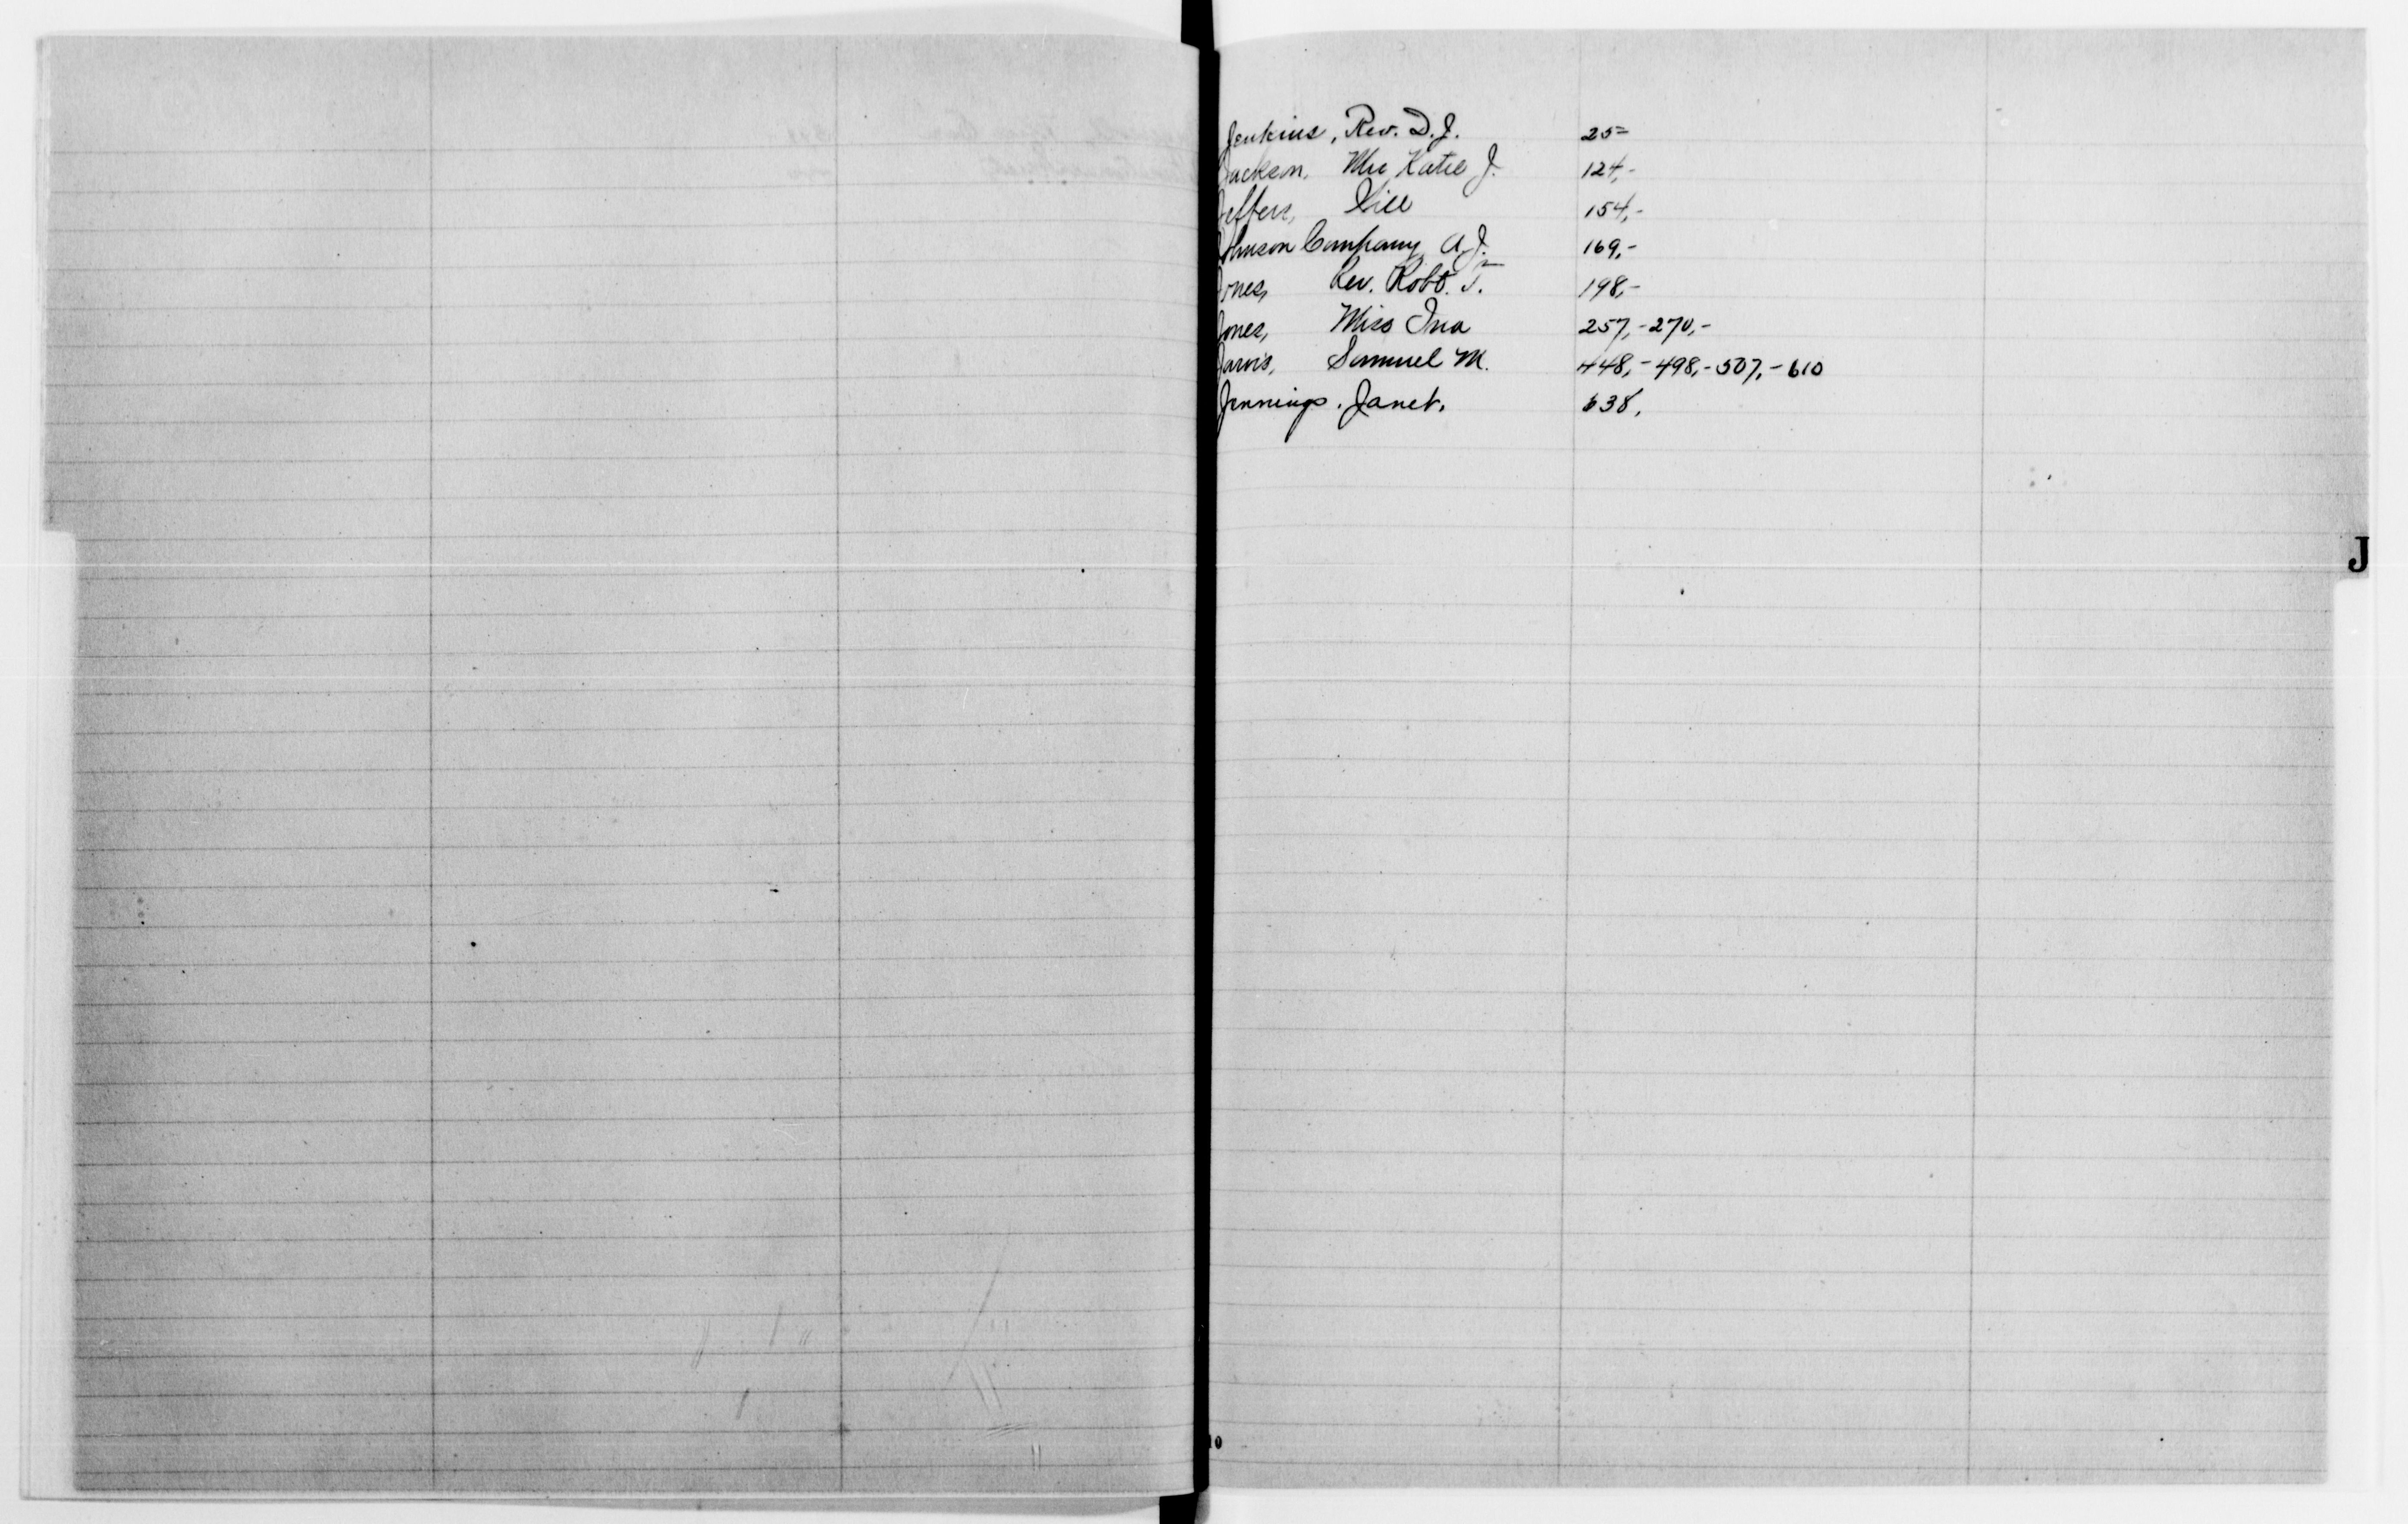 Jenkins, Rev. D. J. 25=
Jackson, Mrs Katie J. 124,-
Jeffers, Will 154,-
Johnson Company, A. J. 169,-
Jones, Rev. Robt. T. 198,-
Jones, Miss Ina 257,-270,-
Jarvis, Samuel M. 448,-498,-507,-610
Jennings, Janet. 638,
J
10